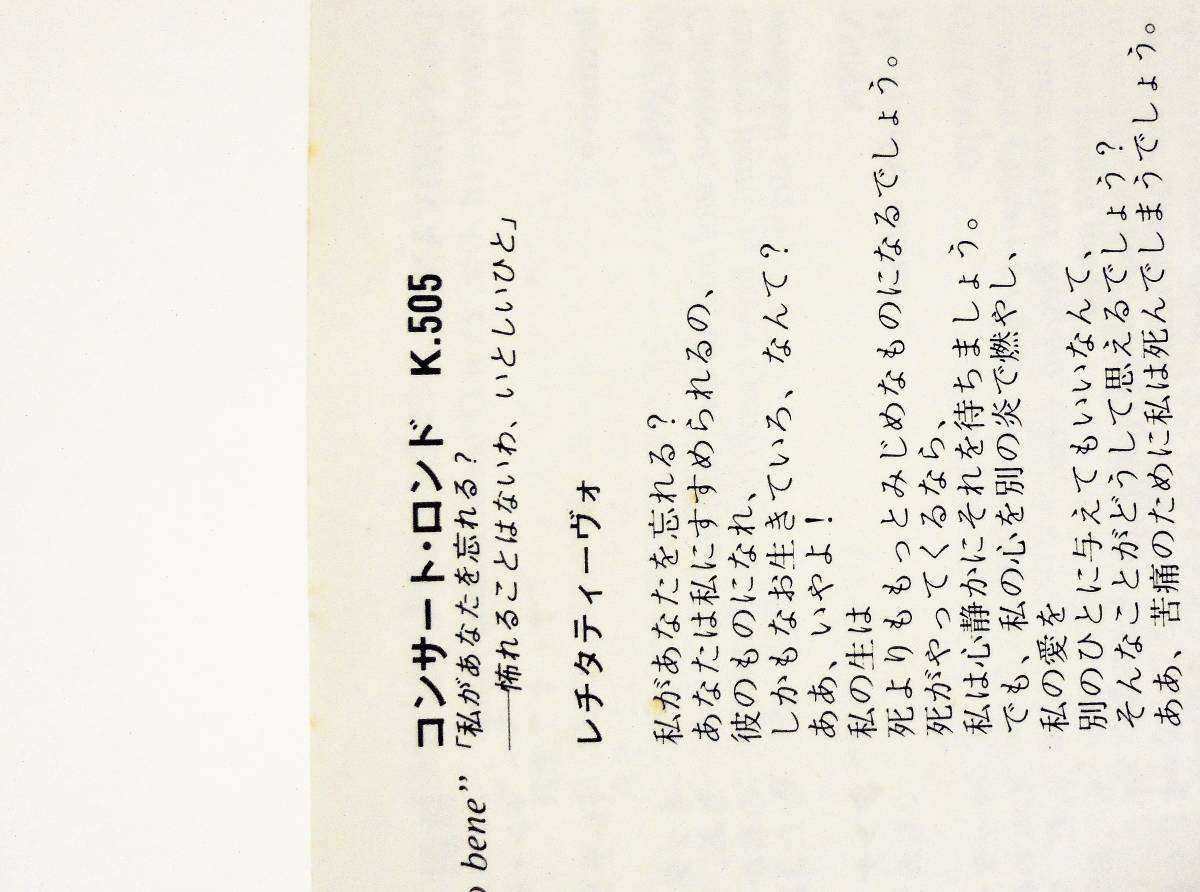 コンサート・ロンド　K.505
「私があなたを忘れる?
——怖れることはないわ、いとしいひと」
bene”
レチタティーヴォ
私があなたを忘れる?
あなたは私にすすめられるの、
彼のものになれ、
しかもなお生きていろ、なんて?
ああ、いやよ!
私の生は
死よりももっとみじめなものになるでしょう。
死がやってくるなら、
私は心静かにそれを待ちましょう。
でも、私の心を別の炎で燃やし、
私の愛を
別のひとに与えてもいいなんて、
そんなことがどうして思えるでしょう?
ああ、苦痛のために私は死んでしまうでしょう。